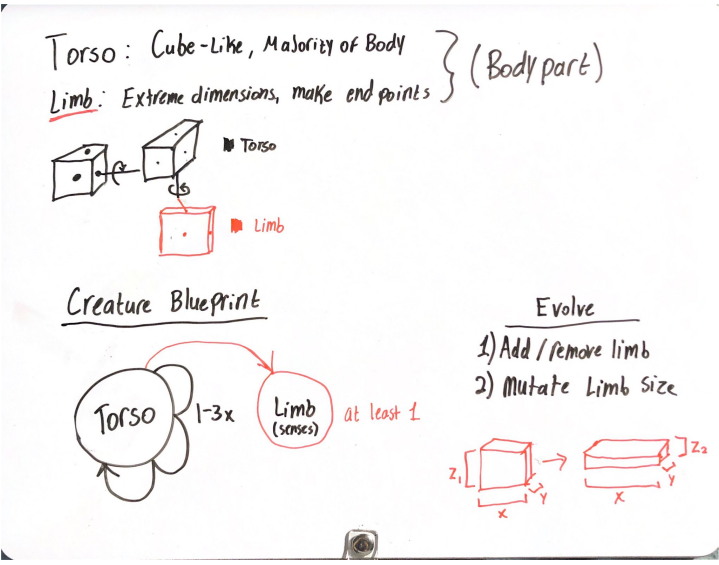 Torso: Cube-Like, Majority of Body
Limb: Extreme dimensions, make end points
(Body part)
Torso
Limb
Creature Blueprint
Torso
1-3x
Limb
(senses)
at least 1
Evolve
1) Add/remove limb
2) Mutate Limb size
Z1
X
Y
X
Y
Z2